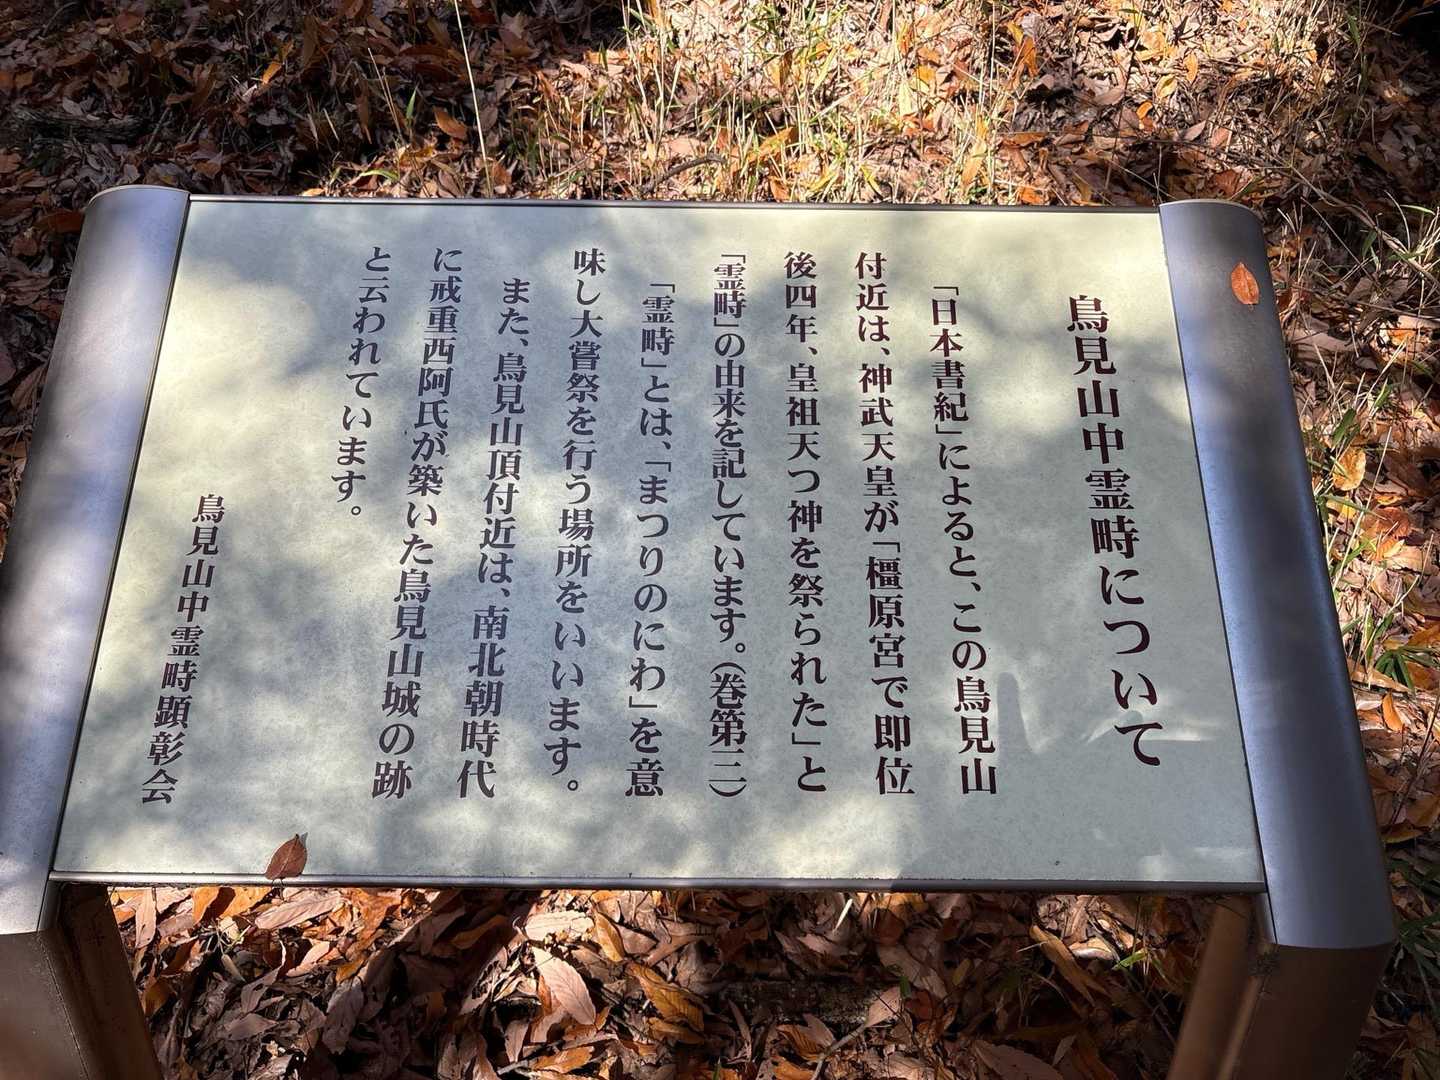 鳥見山中霊畤について
「日本書紀」によると、この鳥見山
付近は、神武天皇が「橿原宮で即位
後四年、皇祖天つ神を祭られた」と
「霊畤」の由来を記しています。(巻第三)
「霊畤」とは、「まつりのにわ」を意
味し大嘗祭を行う場所をいいます。
また、鳥見山頂付近は、南北朝時代
に戒重西阿氏が築いた鳥見山城の跡
と云われています。
鳥見山中霊畤顕彰会